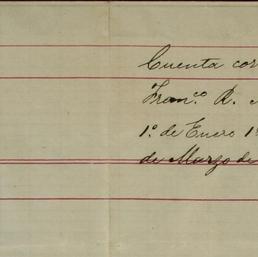 Cuenta cor
Franco. R.
1o. de Enero 1
de Marzo de